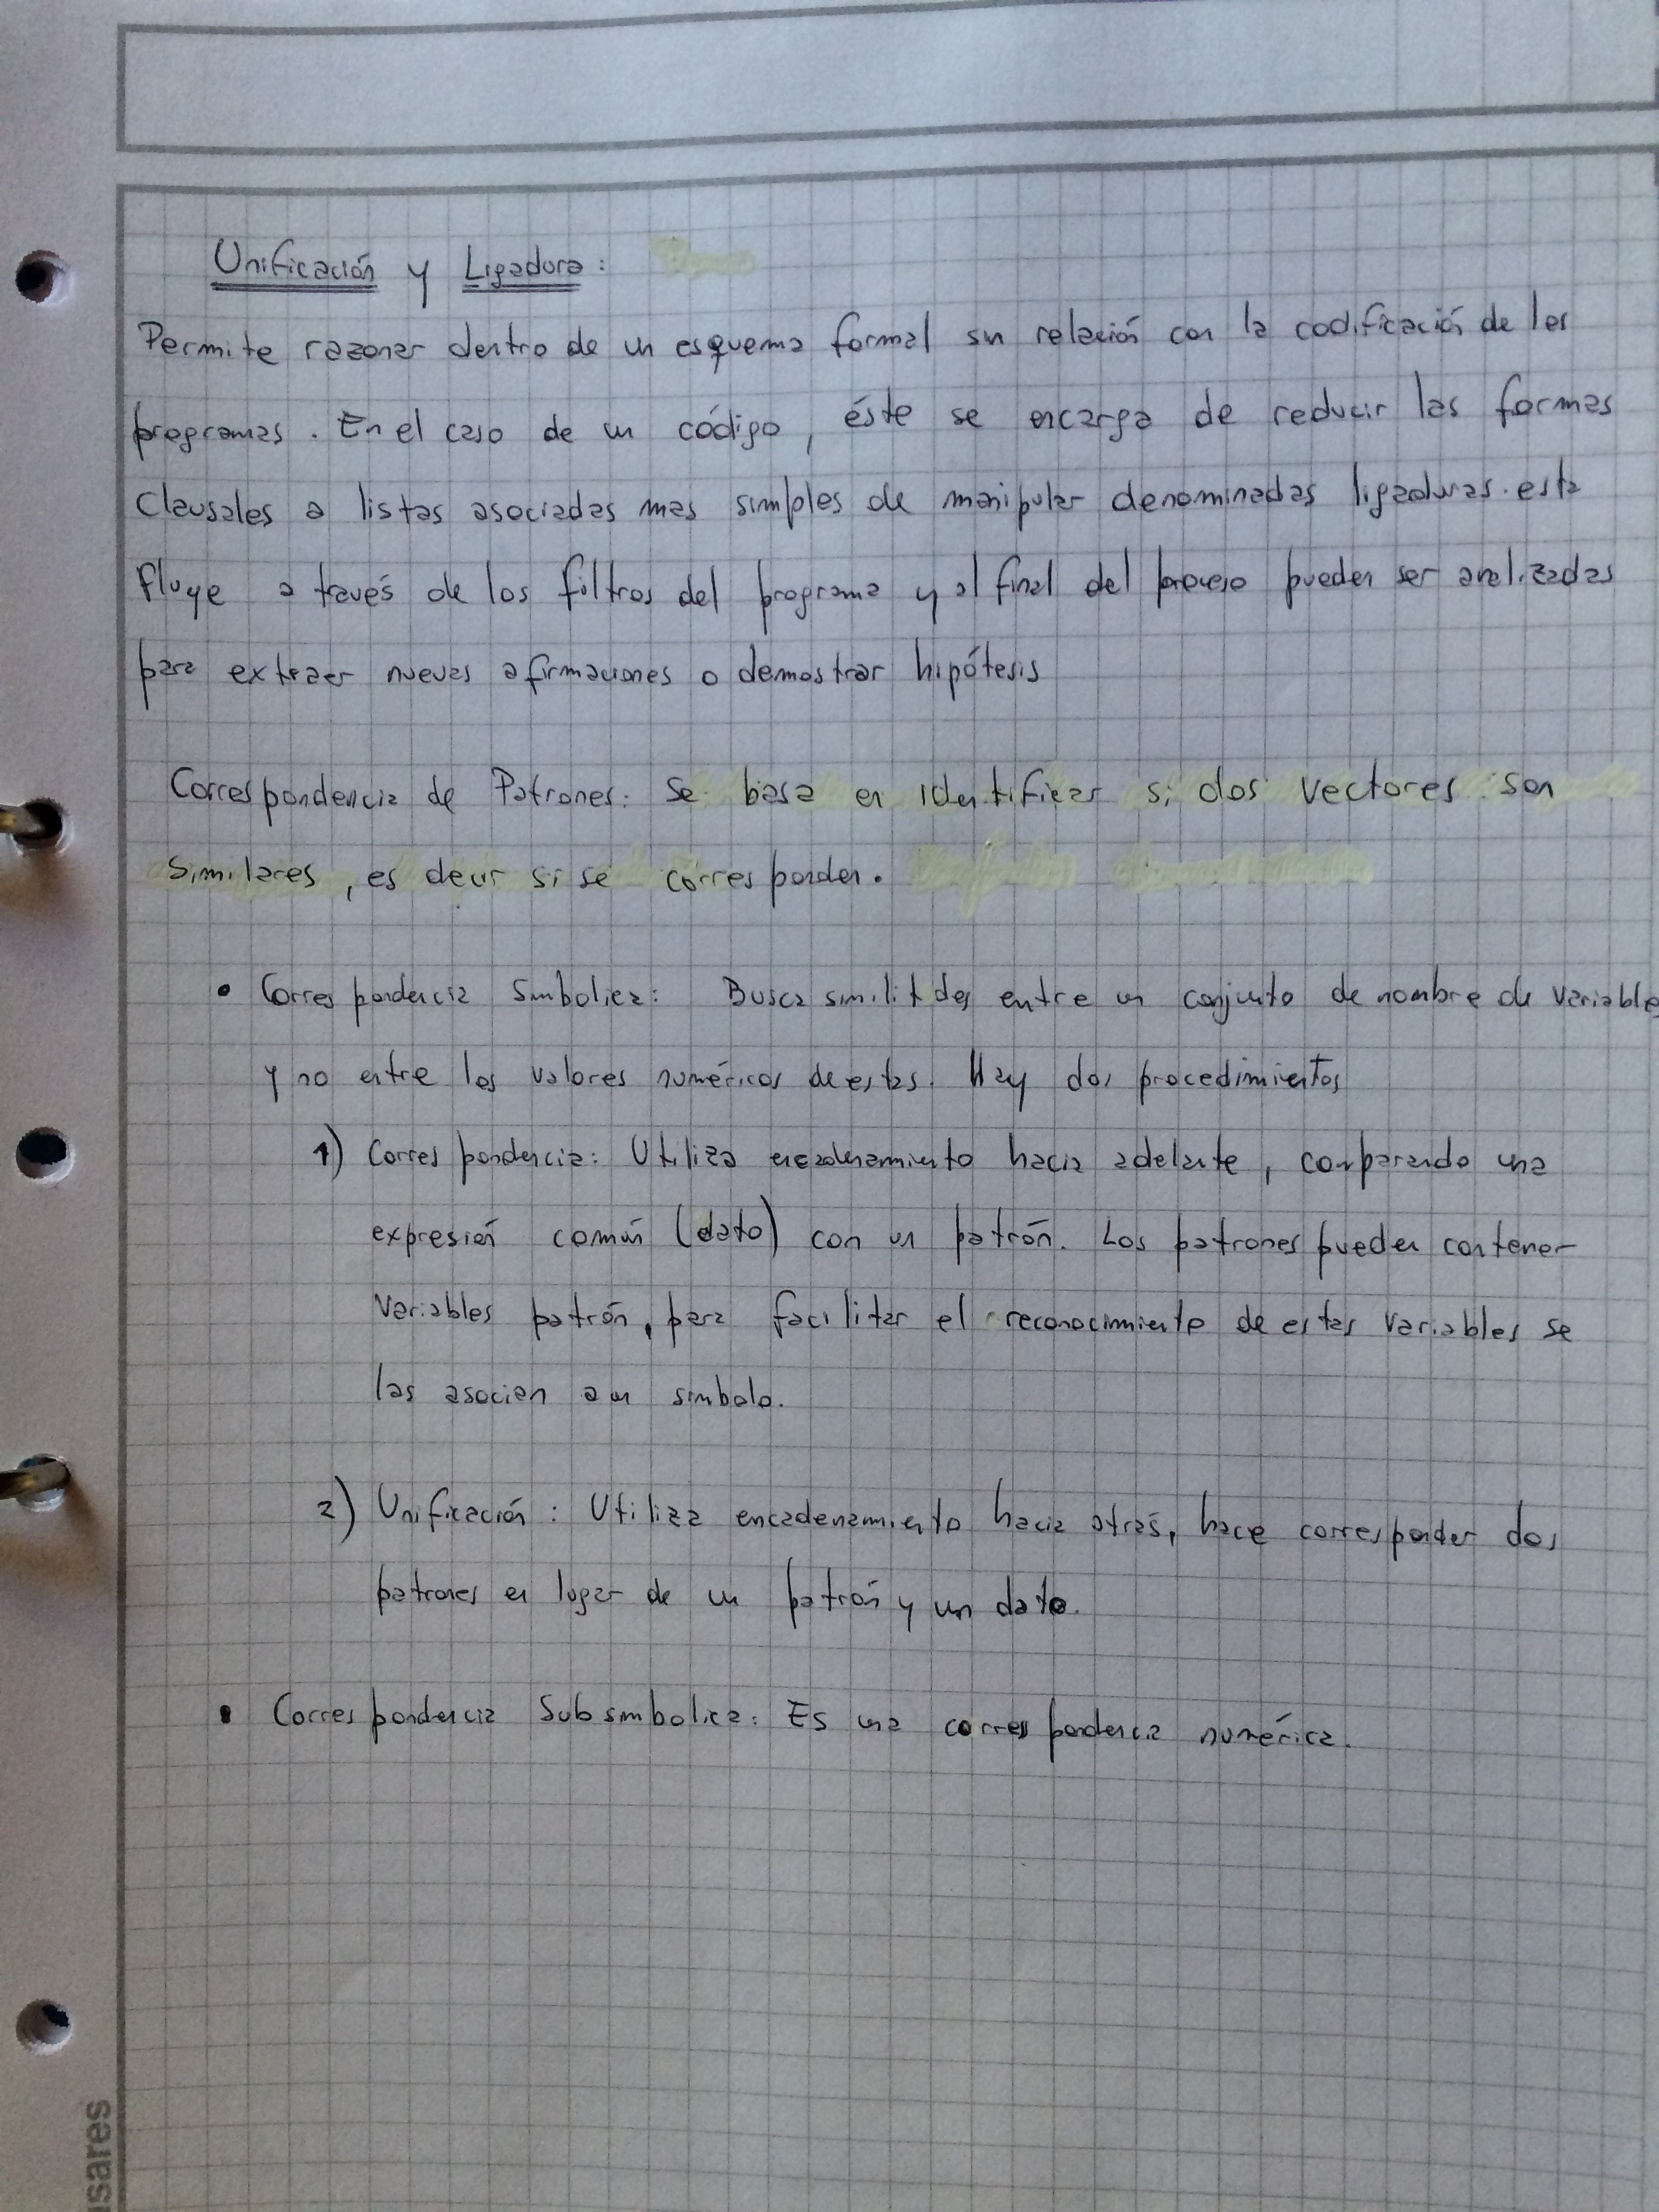 Unificación y Ligadura:
Permite razonar dentro de un esquema formal sin relación con la codificación de los
programas. En el caso de un código, éste se encarga de reducir las formas
Clausales a listas asociadas mas simples de manipular denominadas ligaduras. esta
fluye a través de los filtros del programa y al final del proceso pueden ser analizadas
para extraer nuevas afirmaciones o demostrar hipótesis
Correspondencia de Patrones: Se basa en identificar si dos vectores son
similares, es decir si se corresponden.
• Correspondencia Simbolica: Busca similitdes entre un conjunto de nombre de variable
y no entre los valores numéricos de estas. Hay dos procedimientos
1) Correspondencia: Utiliza encadenamiento hacia adelante, comparando una
expresión común (dato) con un patrón. Los patrones pueden contener
variables patrón, para facilitar el reconocimiento de estas variables se
las asocian a un simbolo.
2) Unificación: Utiliza encadenamiento hacia atrás, hace corresponder dos
patrones en lugar de un patrón y un dato.
• Correspondencia Subsimbolica: Es una correspondencia numérica.
usares